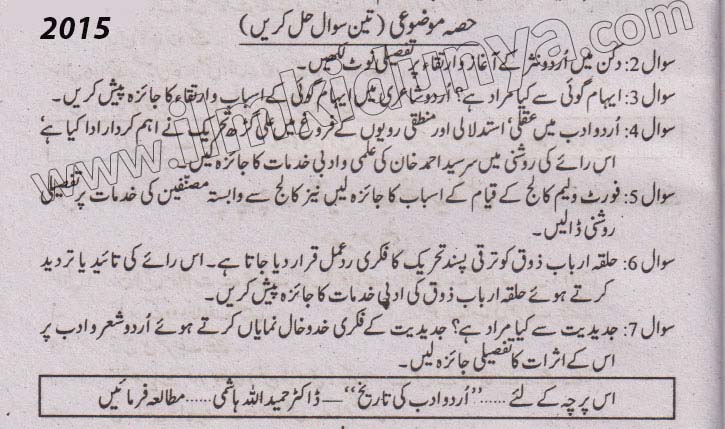 2015
حصہ موضوعی (تین سوال حل کریں)
سوال 2: دکن میں اُردو نثر کے آغاز و ارتقاء پر تفصیلی نوٹ لکھیں۔
سوال 3: ایہام گوئی سے کیا مراد ہے؟ اُردو شاعری میں ایہام گوئی کے اسباب و ارتقاء کا جائزہ پیش کریں۔
سوال 4: اُردو ادب میں عقلی' استدلالی اور منطقی رویوں کے فروغ میں علی گڑھ تحریک نے اہم کردار ادا کیا ہے'
اس رائے کی روشنی میں سرسید احمد خان کی علمی و ادبی خدمات کا جائزہ لیں۔
سوال 5: فورٹ ولیم کالج کے قیام کے اسباب کا جائزہ لیں نیز کالج سے وابستہ مصنّفین کی خدمات پر تفصیلی
روشنی ڈالیں۔
سوال 6: حلقہ ارباب ذوق کو ترقی پسند تحریک کا فکری ردِعمل قرار دیا جاتا ہے۔ اس رائے کی تائید یا تردید
کرتے ہوئے حلقہ ارباب ذوق کی ادبی خدمات کا جائزہ پیش کریں۔
سوال 7: جدیدیت سے کیا مراد ہے؟ جدیدیت کے فکری خدوخال نمایاں کرتے ہوئے اُردو شعر و ادب پر
اس کے اثرات کا تفصیلی جائزہ لیں۔
اس پرچہ کے لئے ...... "اُردو ادب کی تاریخ" — ڈاکٹر حمید اللہ ہاشمی ...... مطالعہ فرمائیں
www.ilmkidunya.com